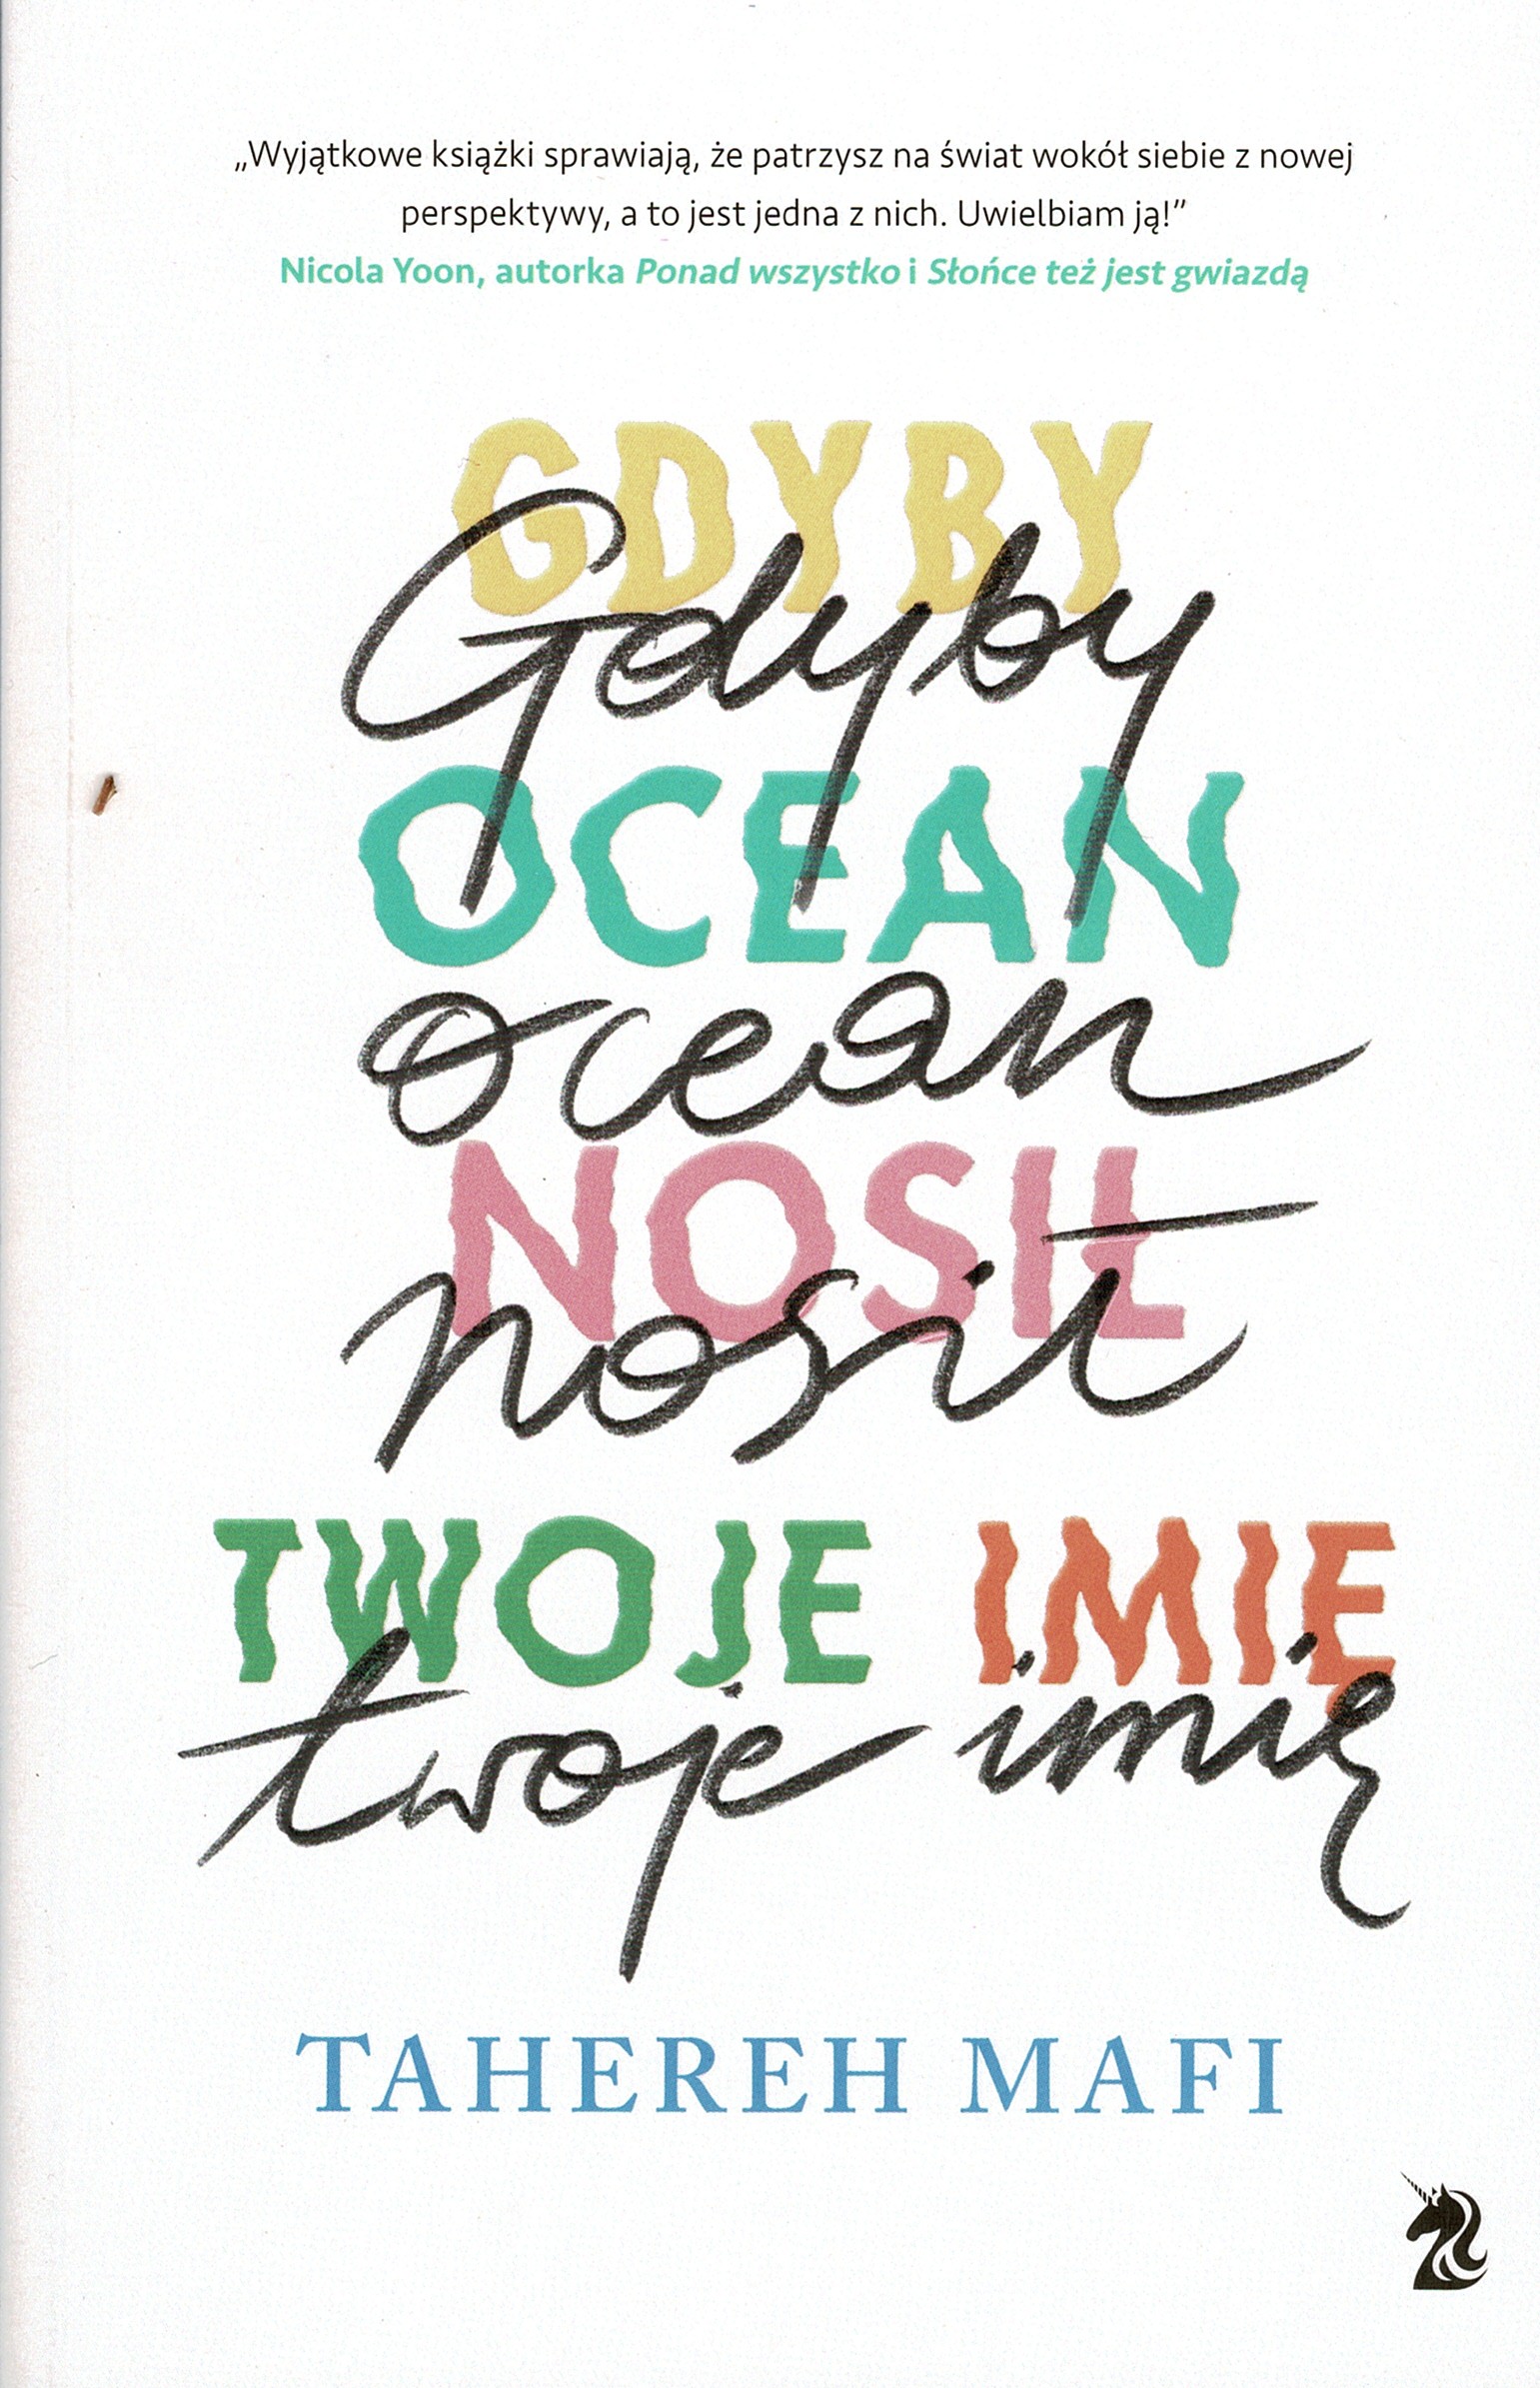 „Wyjątkowe książki sprawiają, że patrzysz na świat wokół siebie z nowej
perspektywy, a to jest jedna z nich. Uwielbiam ją!”
Nicola Yoon, autorka Ponad wszystko i Słońce też jest gwiazdą
GDYBY
Gdyby
OCEAN
ocean
NOSIŁ
nosił
TWOJE IMIĘ
twoje imię
TAHEREH MAFI